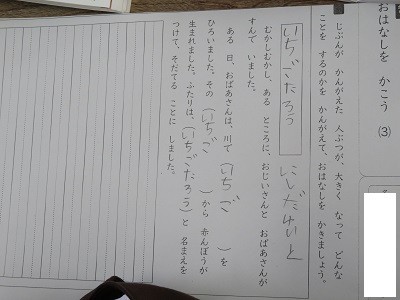 おはなしを かこう (3)
じぶんが かんがえた 人ぶつが、大きく なって どんな
ことを するのかを かんがえて、おはなしを かきましょう。
いちごたろう
むかしむかし、ある ところに、おじいさんと おばあさんが
すんで いました。
ある 日、おばあさんは、川で (いちご)を
ひろいました。その (いちご)から 赤んぼうが
生まれました。ふたりは、(いちごだろう)と 名まえを
つけて、そだてる ことに しました。